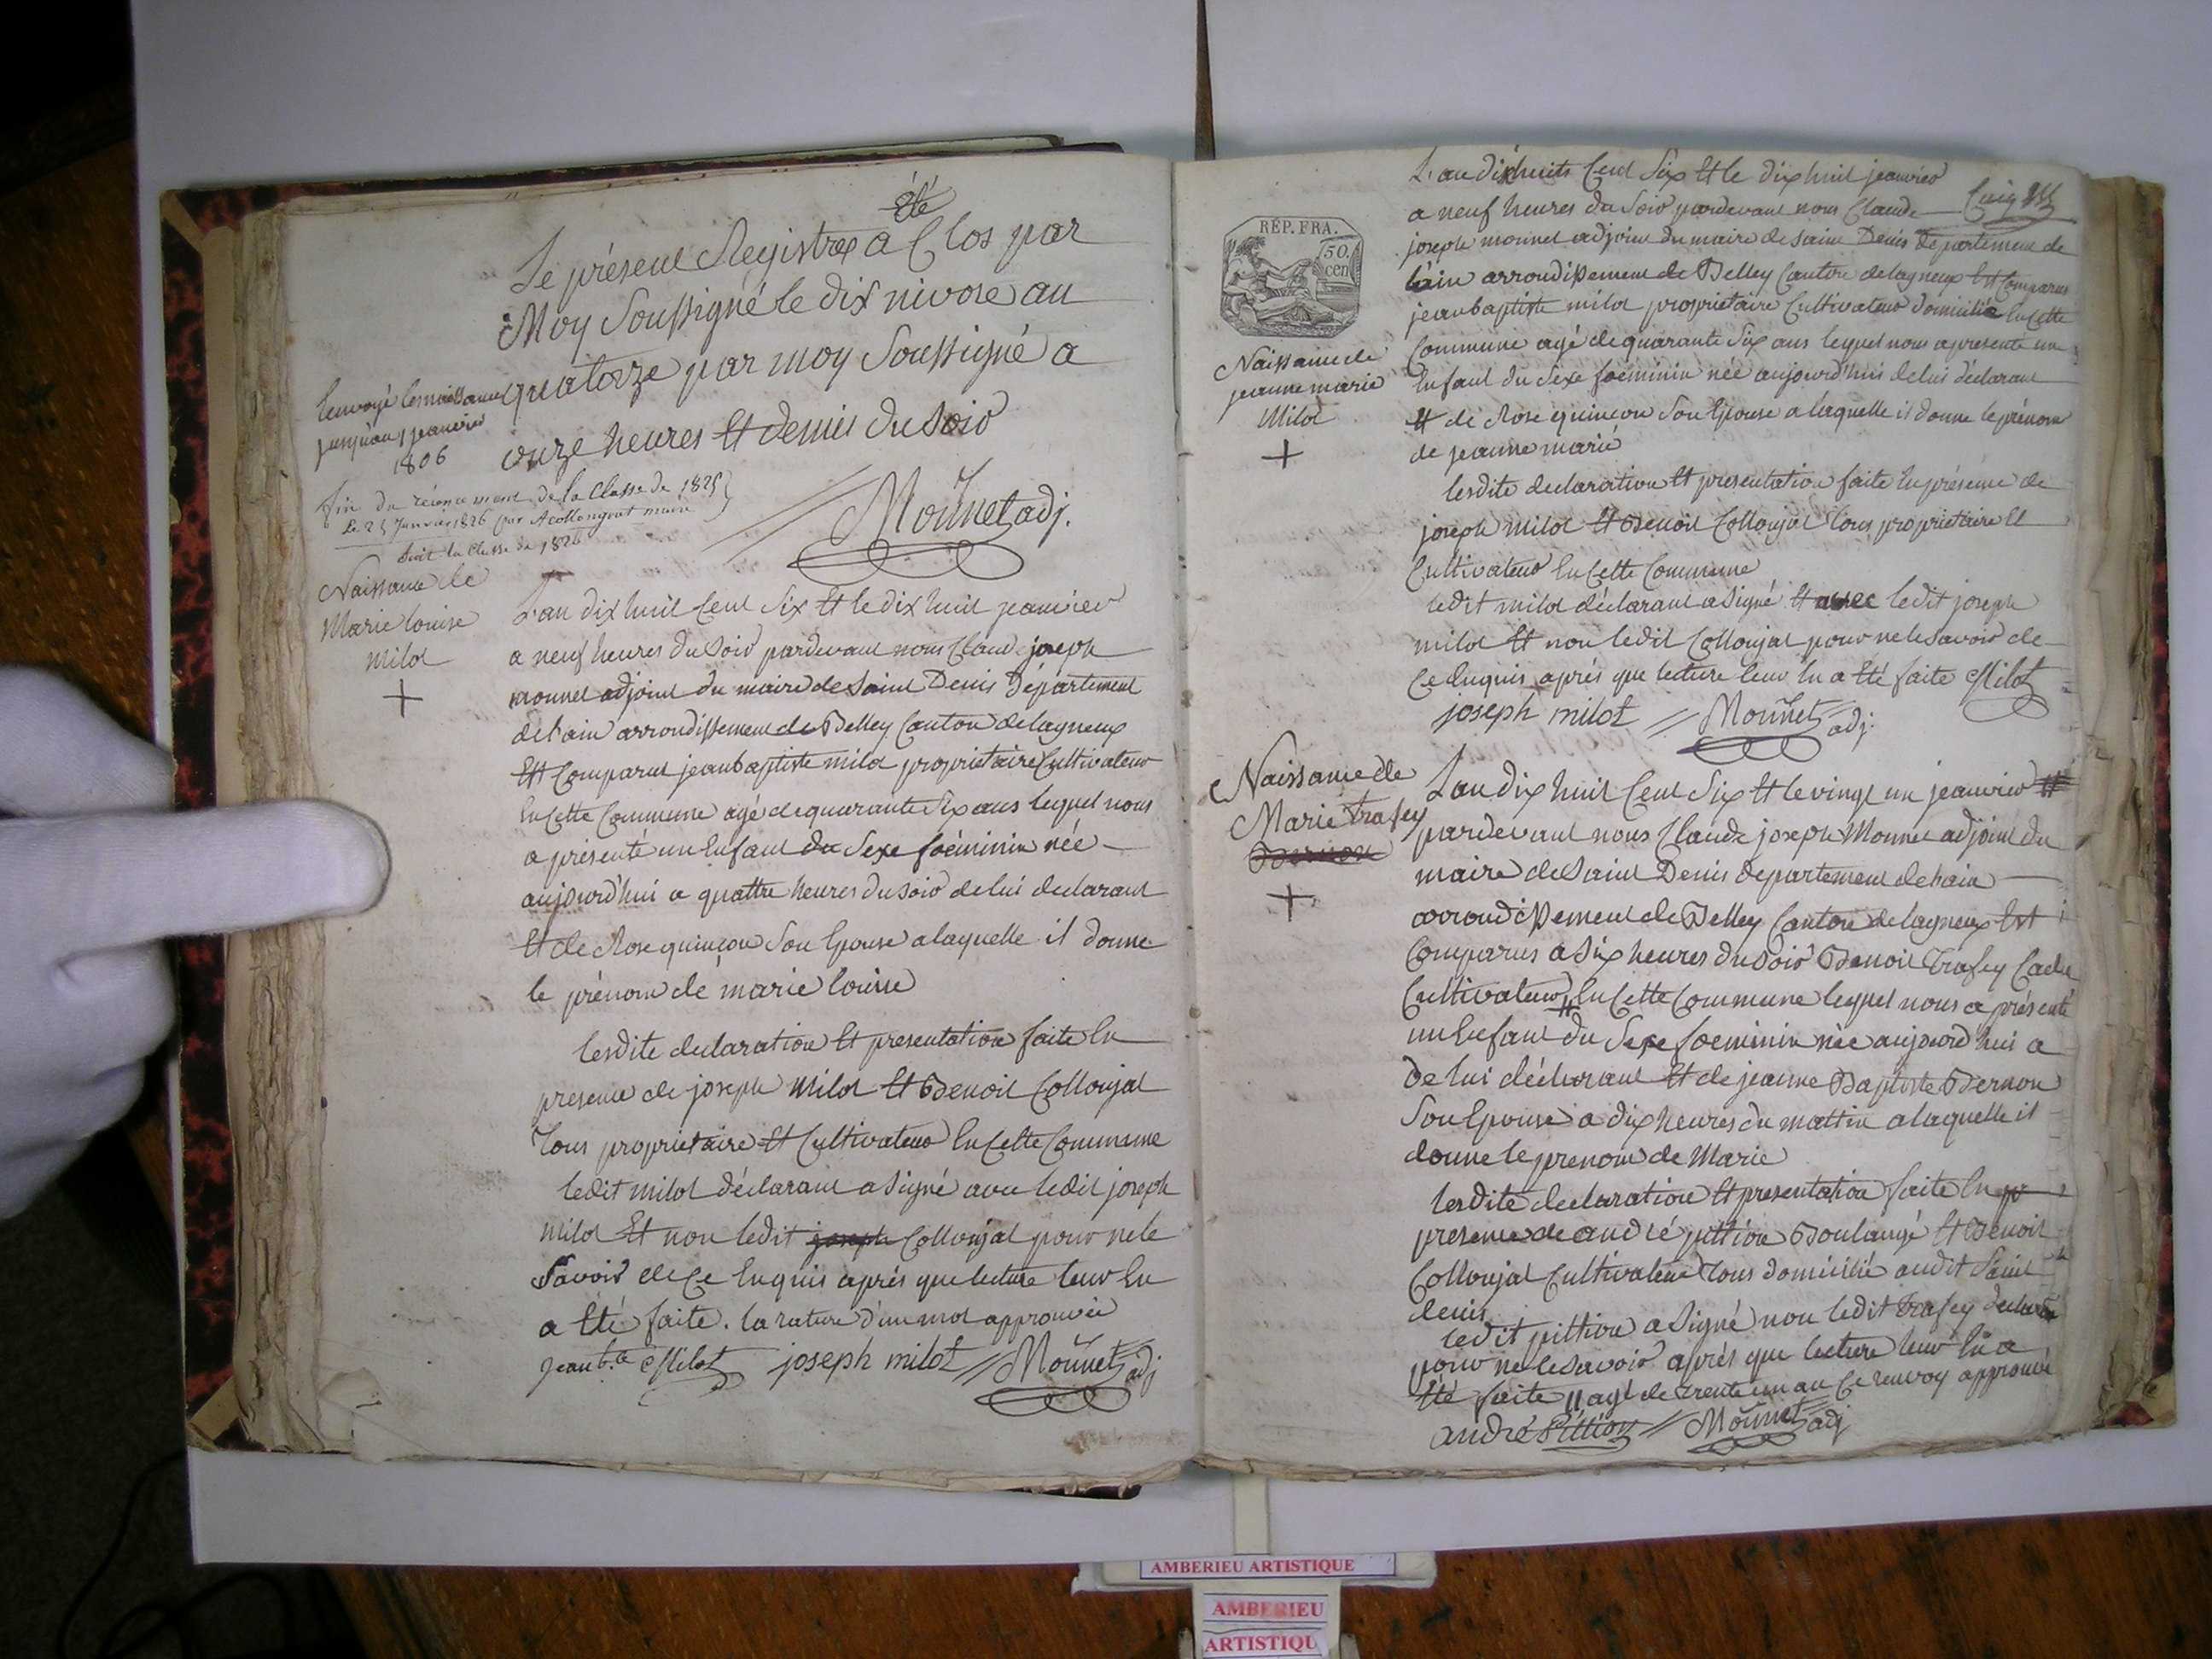 été
Le présent Registre a Clos par
Moy Soussigné le dix nivose an
quatorze par moy Soussigné a
onze heures Et demis du Soir
Monnet adj.
Envoyé les naissance
jusqu'au 1 janvier
1806
fin du recencement de la Classe de 1825
Le 25 Janvier 1826 par Acollongeat maire
Suit la Classe de 1826
Naissance de
Marie louise
milot
+
L'an dix huit Cent Six Et le dix huit janvier
a neuf heures du Soir pardevant nous Claude joseph
monnet adjoint du maire de Saint Denis Département
de l'ain arrondissement de Belley Canton de lagneux
Est Comparut jean baptiste milot proprietaire Cultivateur
En Cette Commune agé de quarante Six ans lequel nous
a présenté un Enfant du Sexe foéminin née
aujourd'hui a quattre heures du Soir de lui declarant
Et de Rose quinçon Son Epouse a laquelle il donne
le prénom de marie louise
lesdite declaration Et presentation faite En
presence de joseph milot Et Benoit Collonjat
Tous proprietaire Et Cultivateur En Cette Commune
ledit milot déclarant a Signé avec ledit joseph
milot Et non ledit joseph Collonjat pour ne le
Savoir de Ce Enquis aprés que lecture leur En
a Eté faite. la rature d'un mot approuvée
Jean b.te Milot joseph milot Monnet adj
L'an dixhuits Cent Six Et le dix huit jeanvier
a neuf heures du Soir pardevant nous Claude
joseph monnet adjoint du maire de saint Denis departement de
l'ain arrondissement de Belley Canton de lagneux Est Comparus
jean baptiste milot proprietaire Cultivateur domicilié En Cette
Commune agé de quarante Six ans lequel nous a presente un
Enfant du Sexe foéminin née aujourd'hui de lui déclarant
Et de Rose quinçon Son Epouse a laquelle il donne le prénom
de jeanne marie
REP. FRA.
50.
cen
Naissance de
jeanne marie
Milot
+
lesdite declaration Et presentation faite En présence de
joseph milot Et Benoit Collonjat Tous proprietaire Et
Cultivateur En Cette Commune
ledit milot déclarant a Signé Et avec ledit joseph
milot Et non ledit Collonjat pour ne le Savoir de
Ce Enquis aprés que lecture leur En a Eté faite Milot
joseph milot Monnet adj.
Naissance de
Marie Trafey
Bernon
+
L'an dix huit Cent Six Et le vingt un jeanvier Et
pardevant nous Claude joseph Monnet adjoint du
maire de Saint Denis departement de l'ain
arrondissement de Belley Canton de lagneux Est
Comparus a Six heures du Soir Benoit Trafey Cadet
Cultivateur // En Cette Commune lequel nous a présenté
un Enfant du Sexe foeminin née aujourd'hui a
De lui déclarant Et de jeanne Baptiste Bernon
Son Epouse a dix heures du mattin a laquelle il
donne le prenom de Marie
lesdite declaration Et presentation faite En
presence de andré pittion Boulangé Et Benoit
Collonjat Cultivateur Tous domicilié audit Saint
denis
ledit pittion a Signé non ledit Trafey declarant
pour ne le Savoir aprés que lecture leur En a
Eté faite // agé de trente un an Ce renvoy approuvé
andré Pittion Monnet adj
AMBERIEU ARTISTIQUE
AMBERIEU
ARTISTIQU